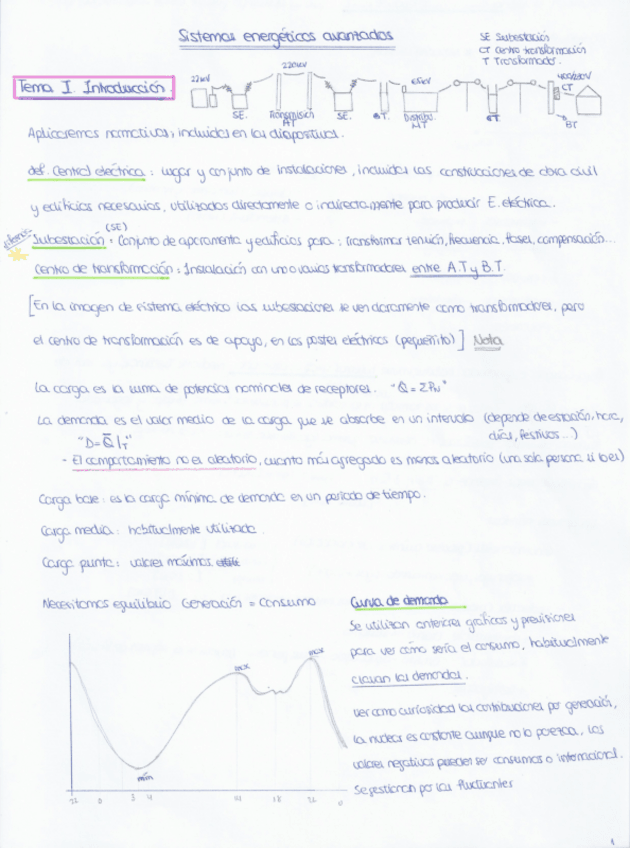 Sistemas energéticos avanzados
SE Subestación
CT Centro transformación
T Transformador
Tema I. Introducción
22kV
220kV
SE.
Transmisión
AT
SE.
ST.
65kV
Distribu.
MT
CT
400/230V
CT
BT
Aplicaremos normativas, incluidas en las diapositivas.
def. Central eléctrica: lugar y conjunto de instalaciones, incluidas las construcciones de obra civil
y edificios necesarios, utilizados directamente o indirectamente para producir E. eléctrica.
(SE)
Subestación = Conjunto de aparamenta y edificios para: transformar tensión, frecuencia, fases, compensación...
Centro de transformación = Instalación con uno o varios transformadores entre A.T y B.T.
[En la imagen de sistema eléctrico las subestaciones se ven claramente como transformadores, pero
el centro de transformación es de apoyo, en los postes eléctricos (pequeñito)] Nota
La carga es la suma de potencias nominales de receptores. "Q = ΣPN"
La demanda es el valor medio de la carga que se absorbe en un intervalo (depende de estación, hora,
días, festivos...)
"D = Q̄ |T"
- El comportamiento no es aleatorio, cuanto más agregado es menos aleatorio (una sola persona sí lo es)
Carga base: es la carga mínima de demanda en un periodo de tiempo.
Carga media: habitualmente utilizada.
Carga punta: valores máximos.
Necesitamos equilibrio Generación = Consumo
Curva de demanda
Se utilizan anteriores gráficos y previsiones
para ver cómo sería el consumo, habitualmente
clavan las demandas.
Ver como curiosidad las contribuciones por generación,
la nuclear es constante aunque no lo parezca, los
valores negativos pueden ser consumos o internacional.
Se gestionan por las fluctuantes
max
max
min
0
3
4
18
21
1